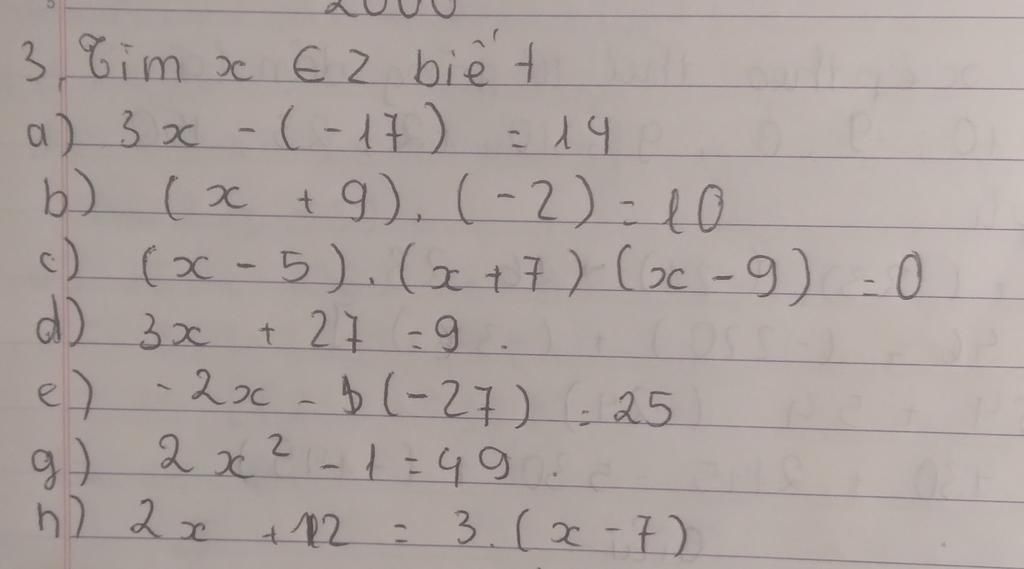 2000
3, Tìm x ∈ Z biết
a) 3x - (-17) = 14
b) (x + 9). (-2) = 10
c) (x - 5). (x + 7) (x - 9) = 0
d) 3x + 27 = 9.
e) -2x - (-27) = 25
g) 2x² - 1 = 49.
h) 2x + 12 = 3. (x - 7)